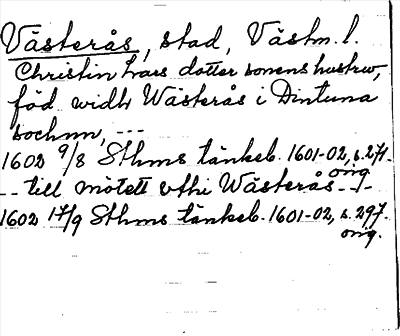 Västerås, stad, Västm. l.
Christin Lars dotter sonens hustrw,
föd widh Wästerås i Dintuna
sochnn, ---
1602 9/8 Sthms tänkeb. 1601-02, s. 271.
orig.
-- till mötett vthi Wästerås --/--
1602 17/9 Sthms tänkeb. 1601-02, s. 297.
orig.